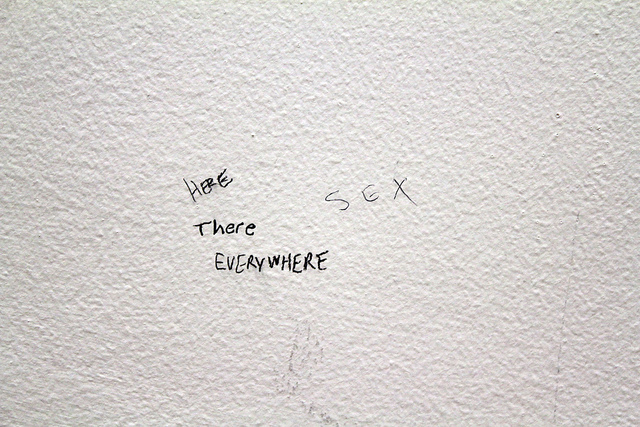 HERE
SEX
There
EVERYWHERE